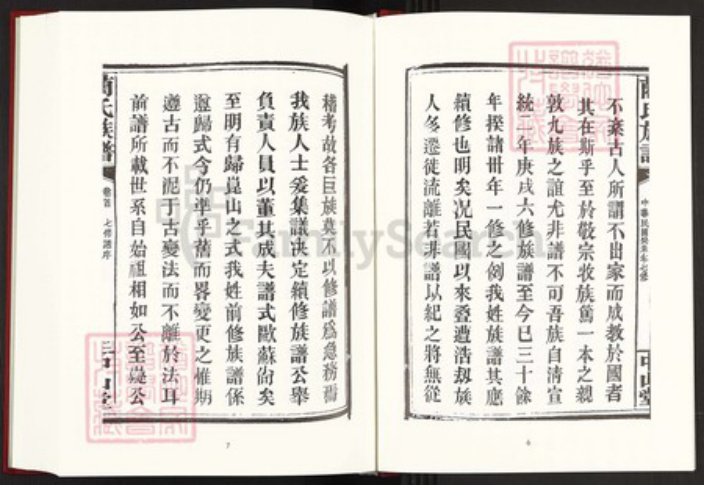 不棄古人所謂不出家而成教於國者
其在斯乎至於敬宗收族篤一本之親
敦九族之誼尤非譜不可吾族自淸宣
統二年庚戌六修族譜至今已三十餘
年揆諸卅年一修之例我姓族譜其應
續修也明矣况民國以來叠遭浩刼族
人多遷徙流離若非譜以紀之將無從
中山堂
6
稽考故各巨族莫不以修譜爲急務
我族人士爰集議决定續修族譜公舉
負責人員以董其成夫譜式歐蘇尙矣
至明有歸崑山之式我姓前修族譜係
遵歸式今仍準乎舊而畧變更之惟期
遵古而不泥于古變法而不離於法耳
前譜所載世系自始祖相如公至公
藺氏族譜
卷首
七修譜序
中山堂
7
FamilySearch